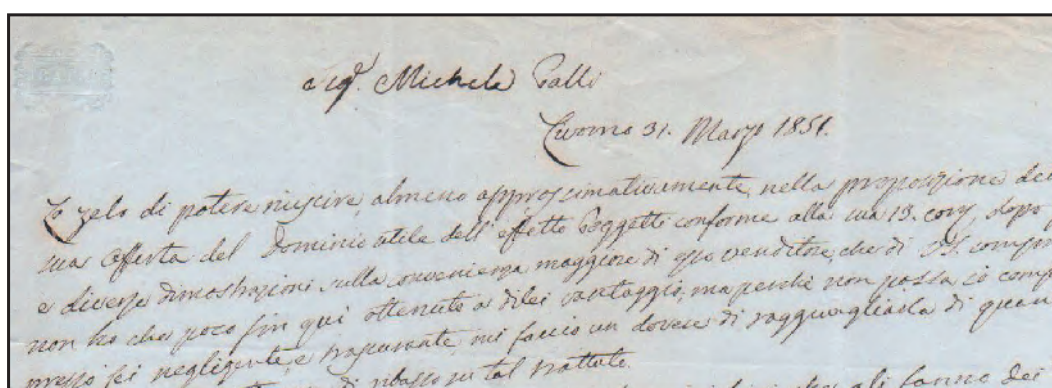 Sig.r Michele Galli
Livorno 31. Marzo 1851.
Lo zelo di potere riuscire, almeno approscimativamente, nella proposizione dei
sua offerta del Dominio utile dell'effetto Poggetti conforme alla sua 13. corr.e, dopo
e diverse dimostrazioni sulla convenienza maggiore di esso venditore, che di VS. compr
non ho che poco fin qui ottenuto a di lei vantaggio, ma perché non possa io comp
presso lei negligente, e trascurante, mi faccio un dovere di ragguagliarla di quan
di ribasso su tal trattato.
che gli fanno dei